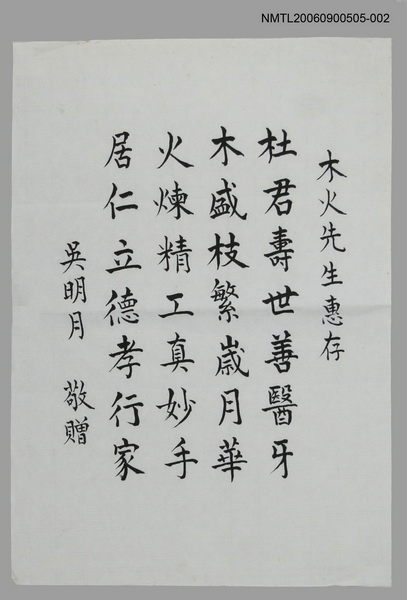 NMTL20060900505-002
木火先生惠存
杜君壽世善醫牙
木盛枝繁歲月華
火煉精工真妙手
居仁立德孝行家
吳明月 敬贈